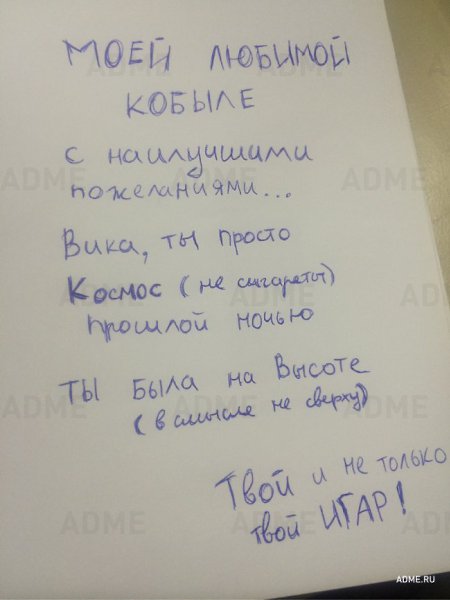 МОЕЙ ЛЮБИМОЙ
КОБЫЛЕ
с наилучшими
пожеланиями...
Вика, ты просто
Космос (не сигареты)
прошлой ночью
ты была на Высоте
(в смысле не сверху)
Твой и не только
твой ИГАР!
ADME.RU